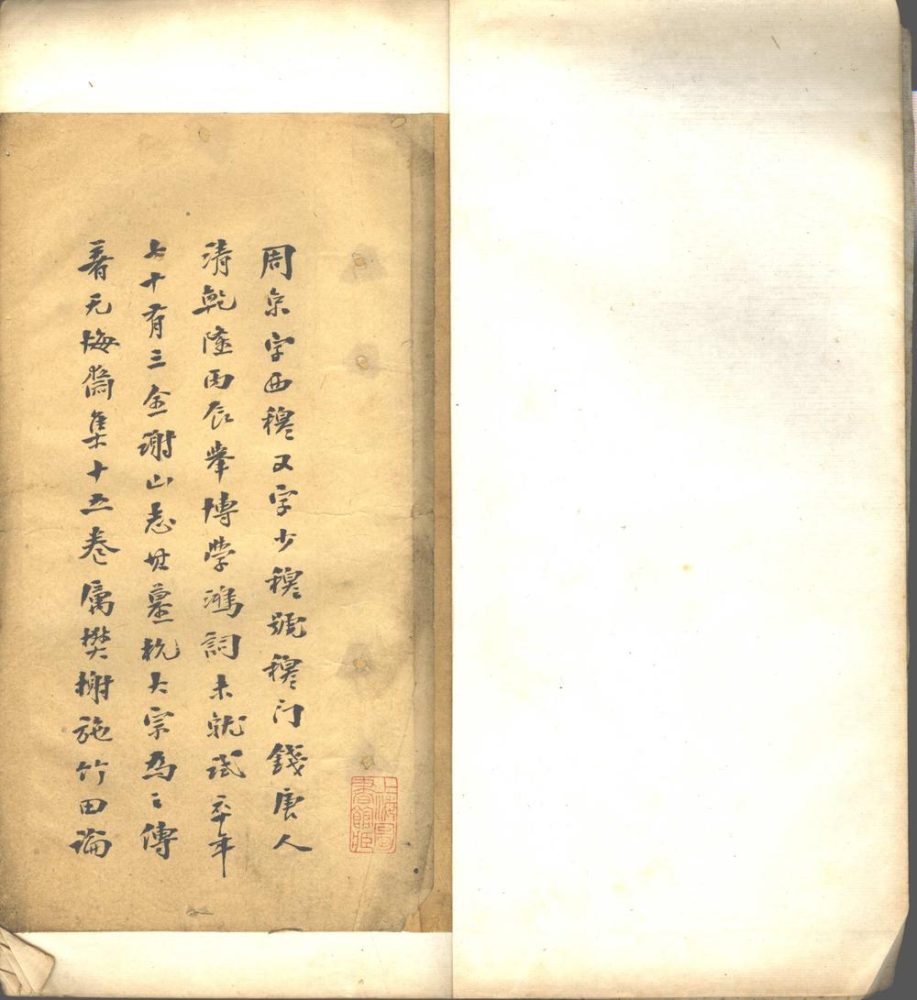 周京字西穆又字少穆號穆门錢唐人
清乾隆丙辰舉博學鴻詞未就試卒年
七十有三全謝山志其墓杭大宗為之傳
著无悔齋集十五卷厲樊榭施竹田論
上海圖
書館藏